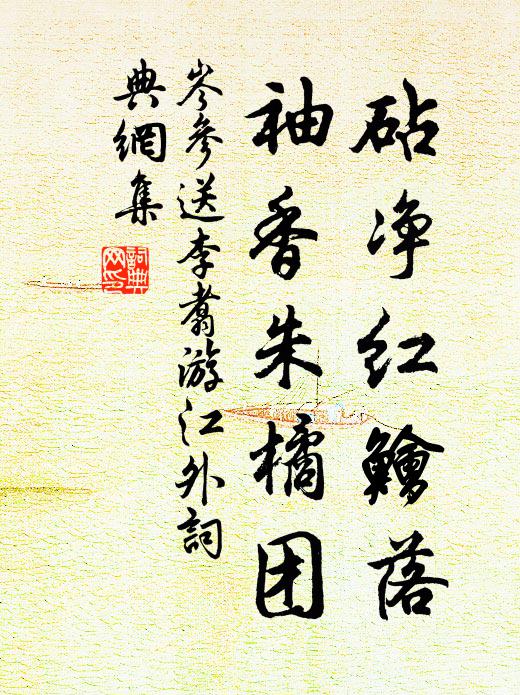 砧净红鱠落
袖香朱橘团
岑参送李翥游江外词
典網集
詞典
网印